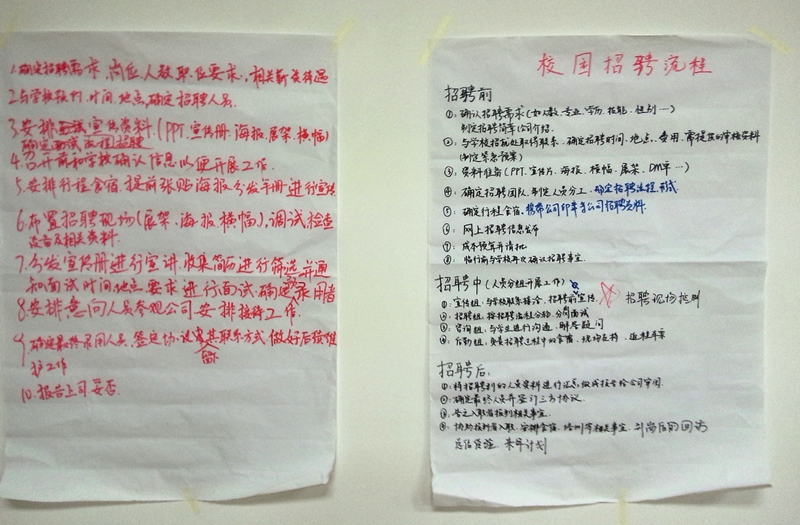 1.确定招聘需求,岗位.人数.职位要求,相关薪资待遇
2.与学校预约,时间,地点,确定招聘人员.
3.安排面试宣传资料.(PPT.宣传册.海报.展架.横幅)
确定面试流程招聘
4.召开前和学校确认信息以便开展工作.
5.安排行程食宿.提前张贴海报.分发手册.进行宣传
6.布置招聘现场(展架、海报、横幅),调试检查
设备及相关资料.
7.分发宣传册进行宣讲.收集简历进行筛选并通
知面试时间.地点.要求.进行面试.确定录用者
8.安排意向人员参观公司.安排接待工作.
9.确定最终录用人员,签定协议其联系方式,做好后续维
留
护工作
10.报告上司妥否.
校园招聘流程
招聘前
①:确认招聘需求(如人数.专业.学历.技能.性别…)
制定招聘简章(公司介绍.
②:与学校招就处取得联系.确定招聘时间.地点.费用.需提供的审核资料
(制定紧急预案)
③:资料准备(PPT.宣传片.海报.横幅.展架.DM单…)
④:确定招聘团队.制定人员分工.确定招聘流程.形式.
⑤:确定行程食宿.携带公司印章与公司招聘资料.
⑥:网上招聘信息发布
⑦:成本预算并请批
⑧:临行前与学校再次确认招聘事宜.
招聘中(人员分组开展工作)
①:宣传组:与学校联系接洽.招聘前宣传. 招聘现场控制
②:招聘组:按招聘流程分验.分间面试
③:咨询组:与学生进行沟通.解答疑问
④:后勤组:负责招聘过程中的食宿.现场支持.返程车票
招聘后:
①:将招聘到的人员资料进行汇总做成报告给公司审阅.
②:确定最终人员并签订三方协议.
③:告之入职者报到相关事宜.
④:协助报到者入职.安排食宿.培训等相关事宜.到岗后的回访
总结经验.来年计划